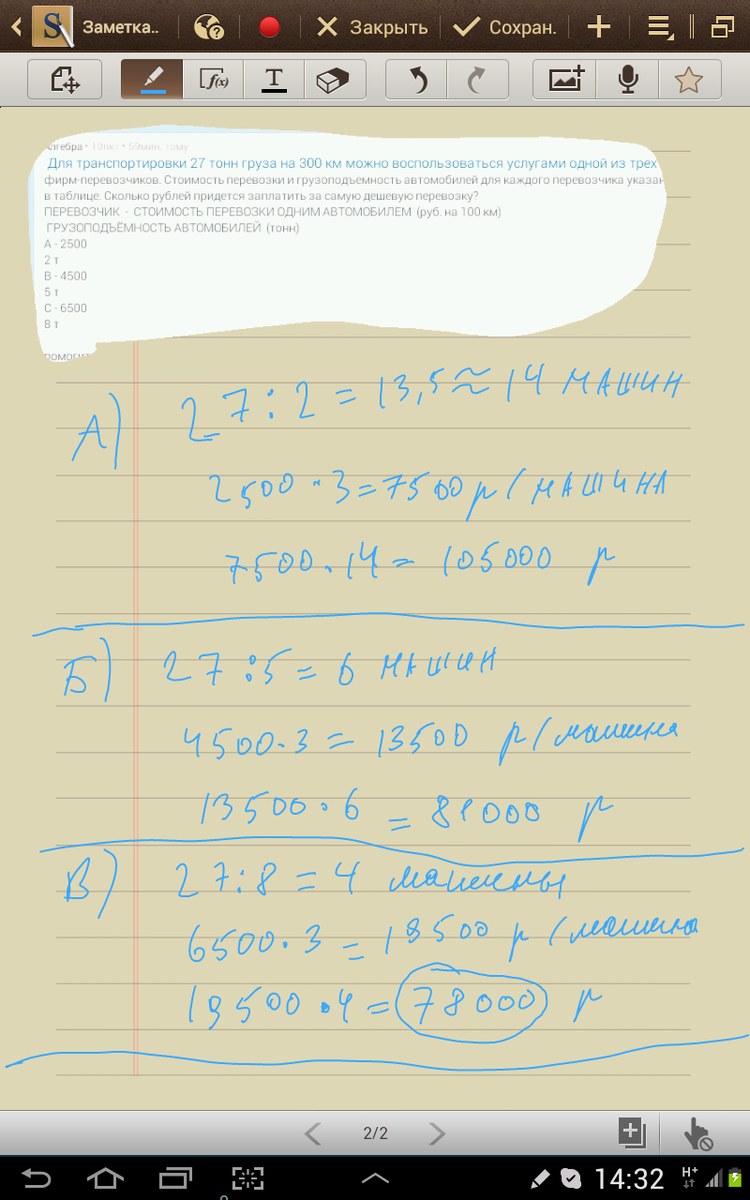 Заметка..
Закрыть
Сохран.
f(x)
T
лгебра • 10пкт • 59мин. тому
Для транспортировки 27 тонн груза на 300 км можно воспользоваться услугами одной из трех
фирм-перевозчиков. Стоимость перевозки и грузоподъемность автомобилей для каждого перевозчика указан
в таблице. Сколько рублей придется заплатить за самую дешевую перевозку?
ПЕРЕВОЗЧИК - СТОИМОСТЬ ПЕРЕВОЗКИ ОДНИМ АВТОМОБИЛЕМ (руб. на 100 км)
ГРУЗОПОДЪЁМНОСТЬ АВТОМОБИЛЕЙ (тонн)
A - 2500
2 т
B - 4500
5 т
C - 6500
8 т
помоги
А) 27 : 2 = 13,5 ≈ 14 МАШИН
2500 · 3 = 7500 р / МАШИНА
7500 · 14 = 105000 р
Б) 27 : 5 = 6 МАШИН
4500 · 3 = 13500 р / машина
13500 · 6 = 81000 р
В) 27 : 8 = 4 машины
6500 · 3 = 19500 р / машина
19500 · 4 = 78000 р
2/2
14:32
H+